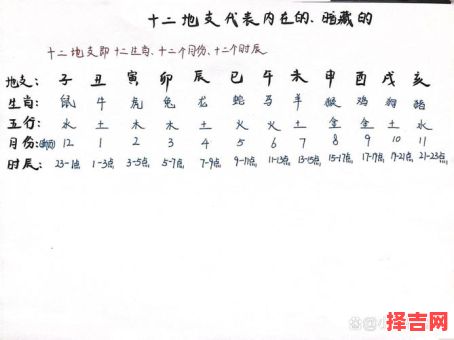 十二地支代表内在的、暗藏的
十二地支即十二生肖、十二个月份、十二个时辰
地支: 子 丑 寅 卯 辰 巳 午 未 申 酉 戌 亥
生肖: 鼠 牛 虎 兔 龙 蛇 马 羊 猴 鸡 狗 猪
五行: 水 土 木 木 土 火 火 土 金 金 土 水
月份: 12 1 2 3 4 5 6 7 8 9 10 11
时辰: 23-1点 1-3点 3-5点 5-7点 7-9点 9-11点 11-13点 13-15点 15-17点 17-19点 19-21点 21-23点
择吉网